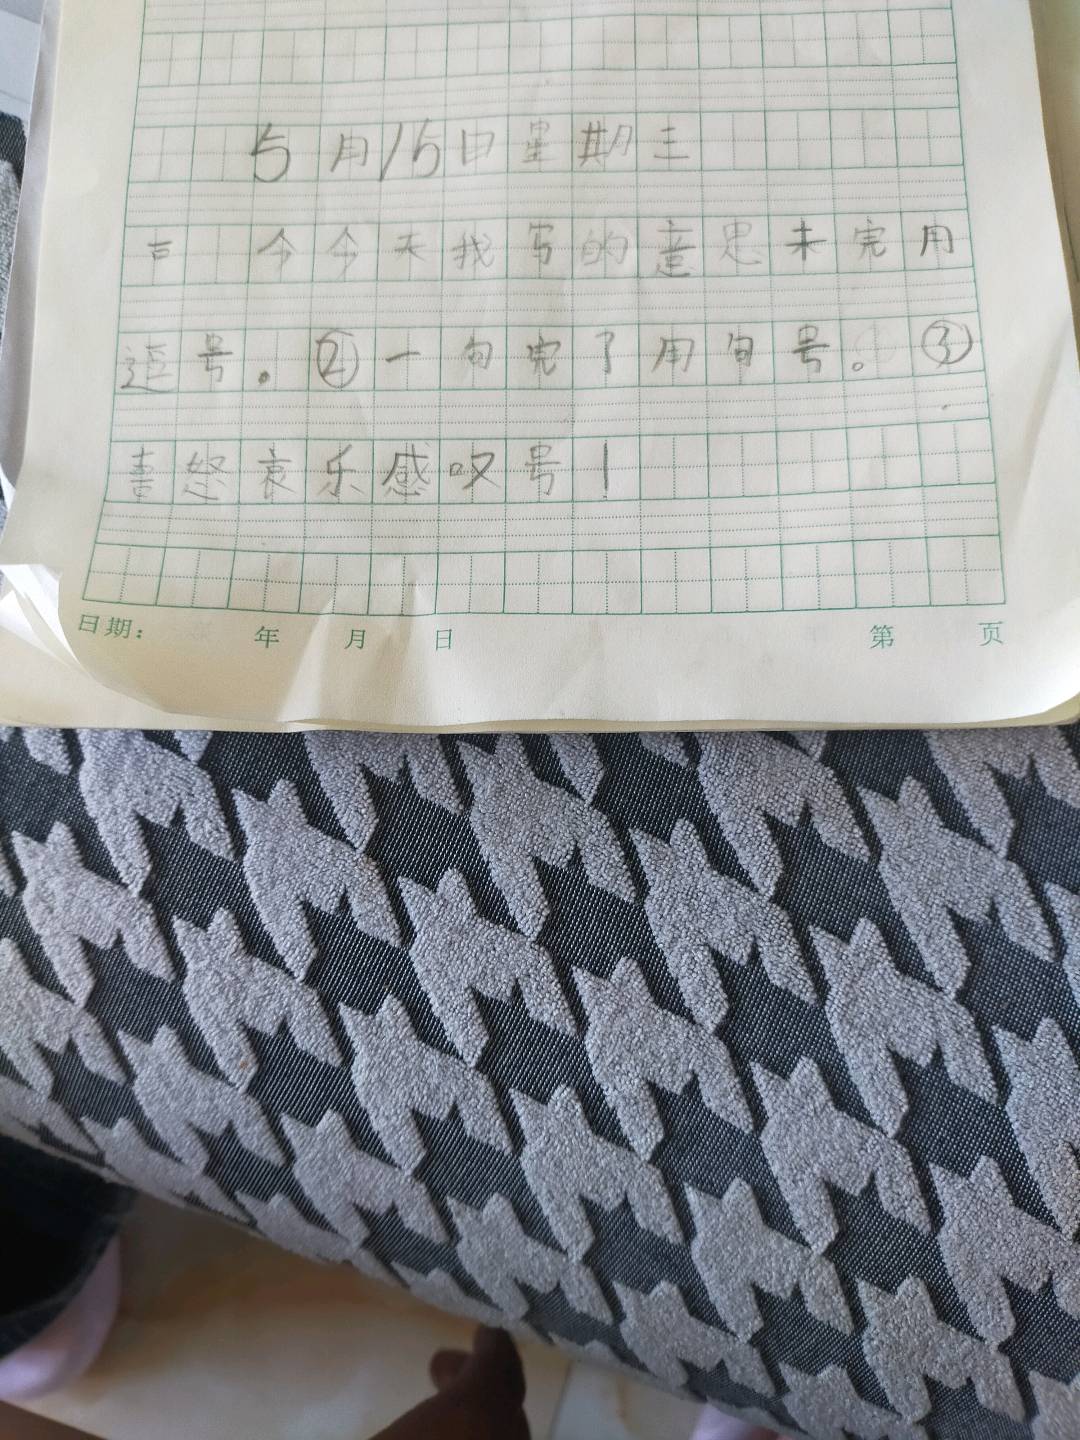 5月15日星期三
今今天我写的意思未完用
逗号. ②一句完了用句号。③
喜怒哀乐感叹号!
日期： 年 月 日 第 页